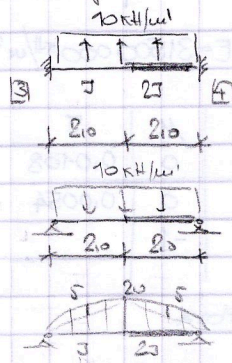 10 кН/м'
3 J 2J 4
2,0 2,0
10 кН/м'
2,0 2,0
5 20 5
J 2J